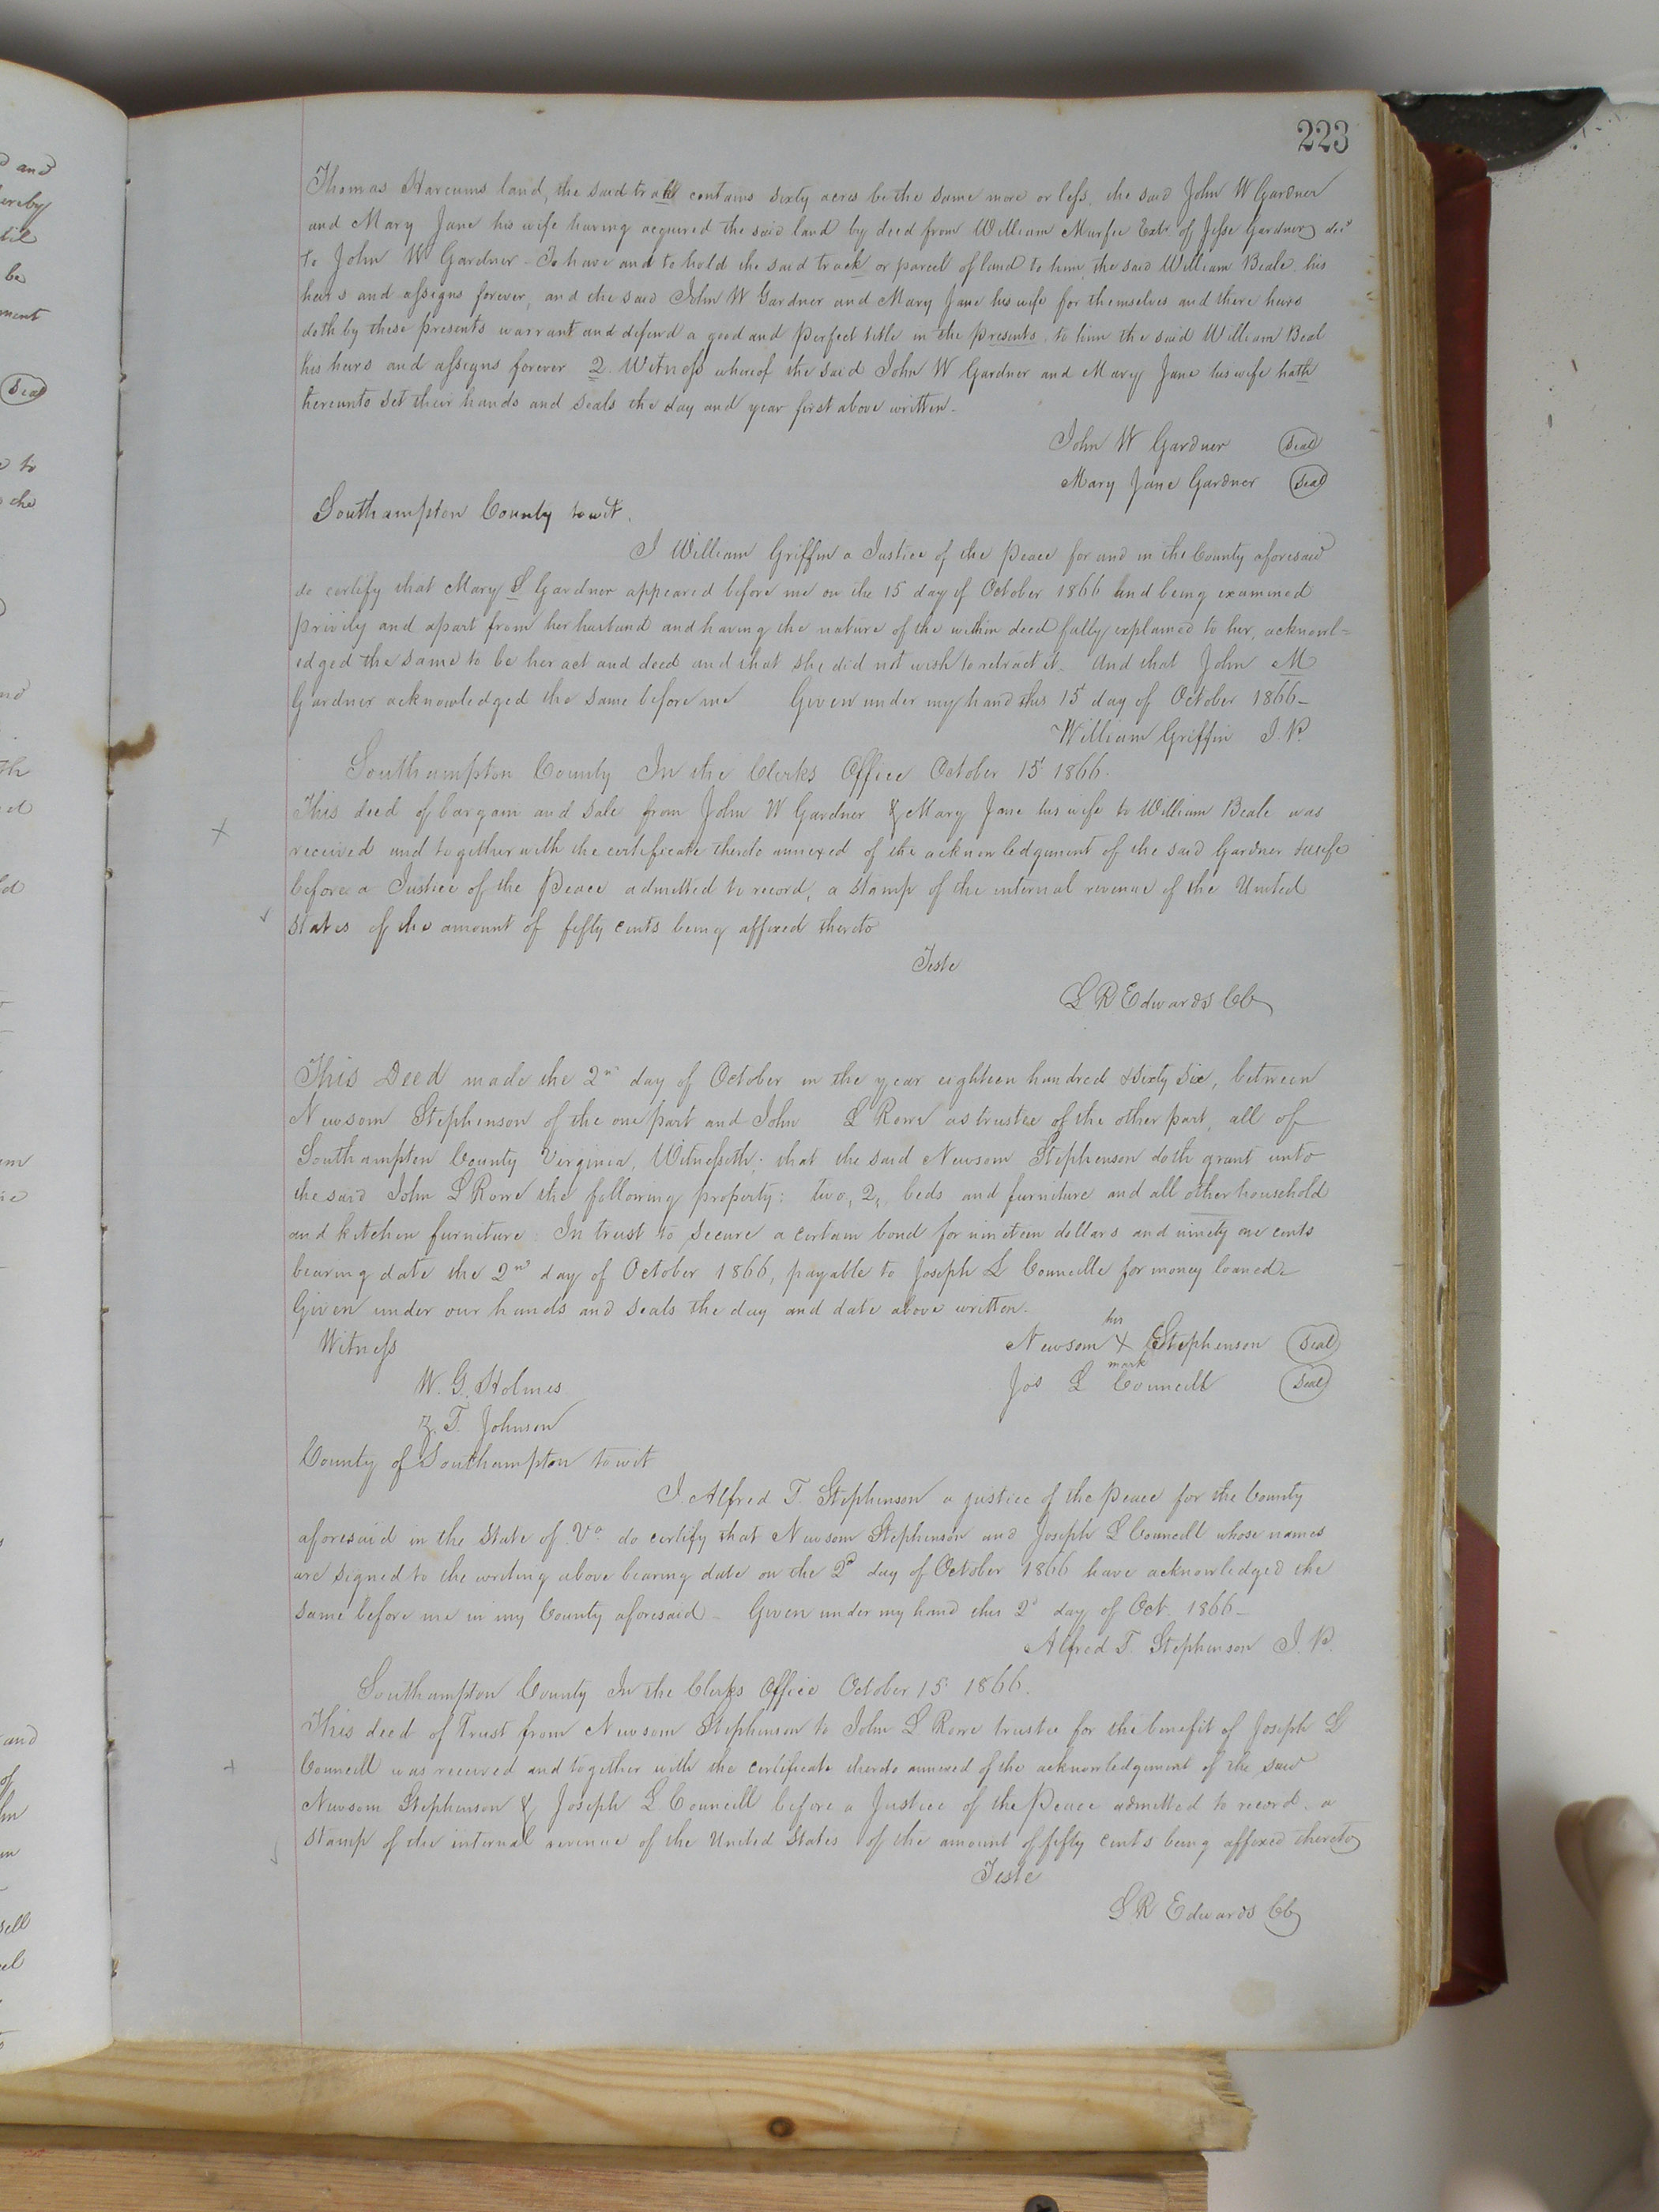 223
Thomas Harcums land, the said track contains sixty acres be the same more or less, the said John W Gardner
and Mary Jane his wife having acquired the said land by deed from William Murfee Extr of Jesse Gardner decd
to John W Gardner - To have and to hold the said track or parcel of land to him, the said William Beale, his
heirs and assigns forever, and the said John W Gardner and Mary Jane his wife for themselves and there heirs
doth by these presents warrant and defend a good and perfect title in the presents, to him the said William Beal
his heirs and assigns forever 2 Witness whereof the said John W Gardner and Mary Jane his wife hath
thereunto set their hands and seals the day and year first above written.
John W Gardner Seal
Mary Jane Gardner Seal
Southampton County towit.
I William Griffin a Justice of the Peace for and in the County aforesaid
do certify that Mary S Gardner appeared before me on the 15 day of October 1866 and being examined
privily and apart from her husband and having the nature of the within deed fully explained to her, acknowl=
edged the same to be her act and deed and that she did not wish to retract it. And that John M
Gardner acknowledged the same before me Given under my hand this 15 day of October 1866-
William Griffin J.P.
Southampton County In the Clerks Office October 15 1866.
This deed of bargain and sale from John W Gardner & Mary Jane his wife to William Beale was
received and together with the certificate thereto annexed of the acknowledgment of the said Gardner & wife
before a Justice of the Peace admitted to record, a stamp of the internal revenue of the United
States of the amount of fifty cents being affixed thereto
Teste
L R Edwards CC
This Deed made the 2nd day of October in the year eighteen hundred & sixty six, between
Newsom Stephenson of the one part and John L Rowe as trustee of the other part, all of
Southampton County Virginia, Witnesseth: that the said Newsom Stephenson doth grant unto
the said John L Rowe the following property: two, 2, beds and furniture and all other household
and kitchen furniture: In trust to secure a certain bond for nineteen dollars and ninety one cents
bearing date the 2nd day of October 1866, payable to Joseph L Councille for money loaned.
Given under our hands and seals the day and date above written.
Witness
his
Newsom X Stephenson Seal
mark
W. G. Holmes
Jos L Councill Seal
Z. T. Johnson
County of Southampton towit
I Alfred T. Stephenson a justice of the Peace for the County
aforesaid in the State of Va do certify that Newsom Stephenson and Joseph L Councill whose names
are signed to the writing above bearing date on the 2d day of October 1866 have acknowledged the
same before me in my County aforesaid - Given under my hand this 2d day of Oct. 1866-
Alfred T. Stephenson J.P.
Southampton County In the Clerks Office October 15 1866.
This deed of Trust from Newsom Stephenson to John L Rowe trustee for the benefit of Joseph L
Councill was received and together with the certificate thereto annexed of the acknowledgement of the said
Newsom Stephenson & Joseph L Councill before a Justice of the Peace admitted to record. a
stamp of the internal revenue of the United States of the amount of fifty cents being affixed thereto
Teste
L R Edwards CC